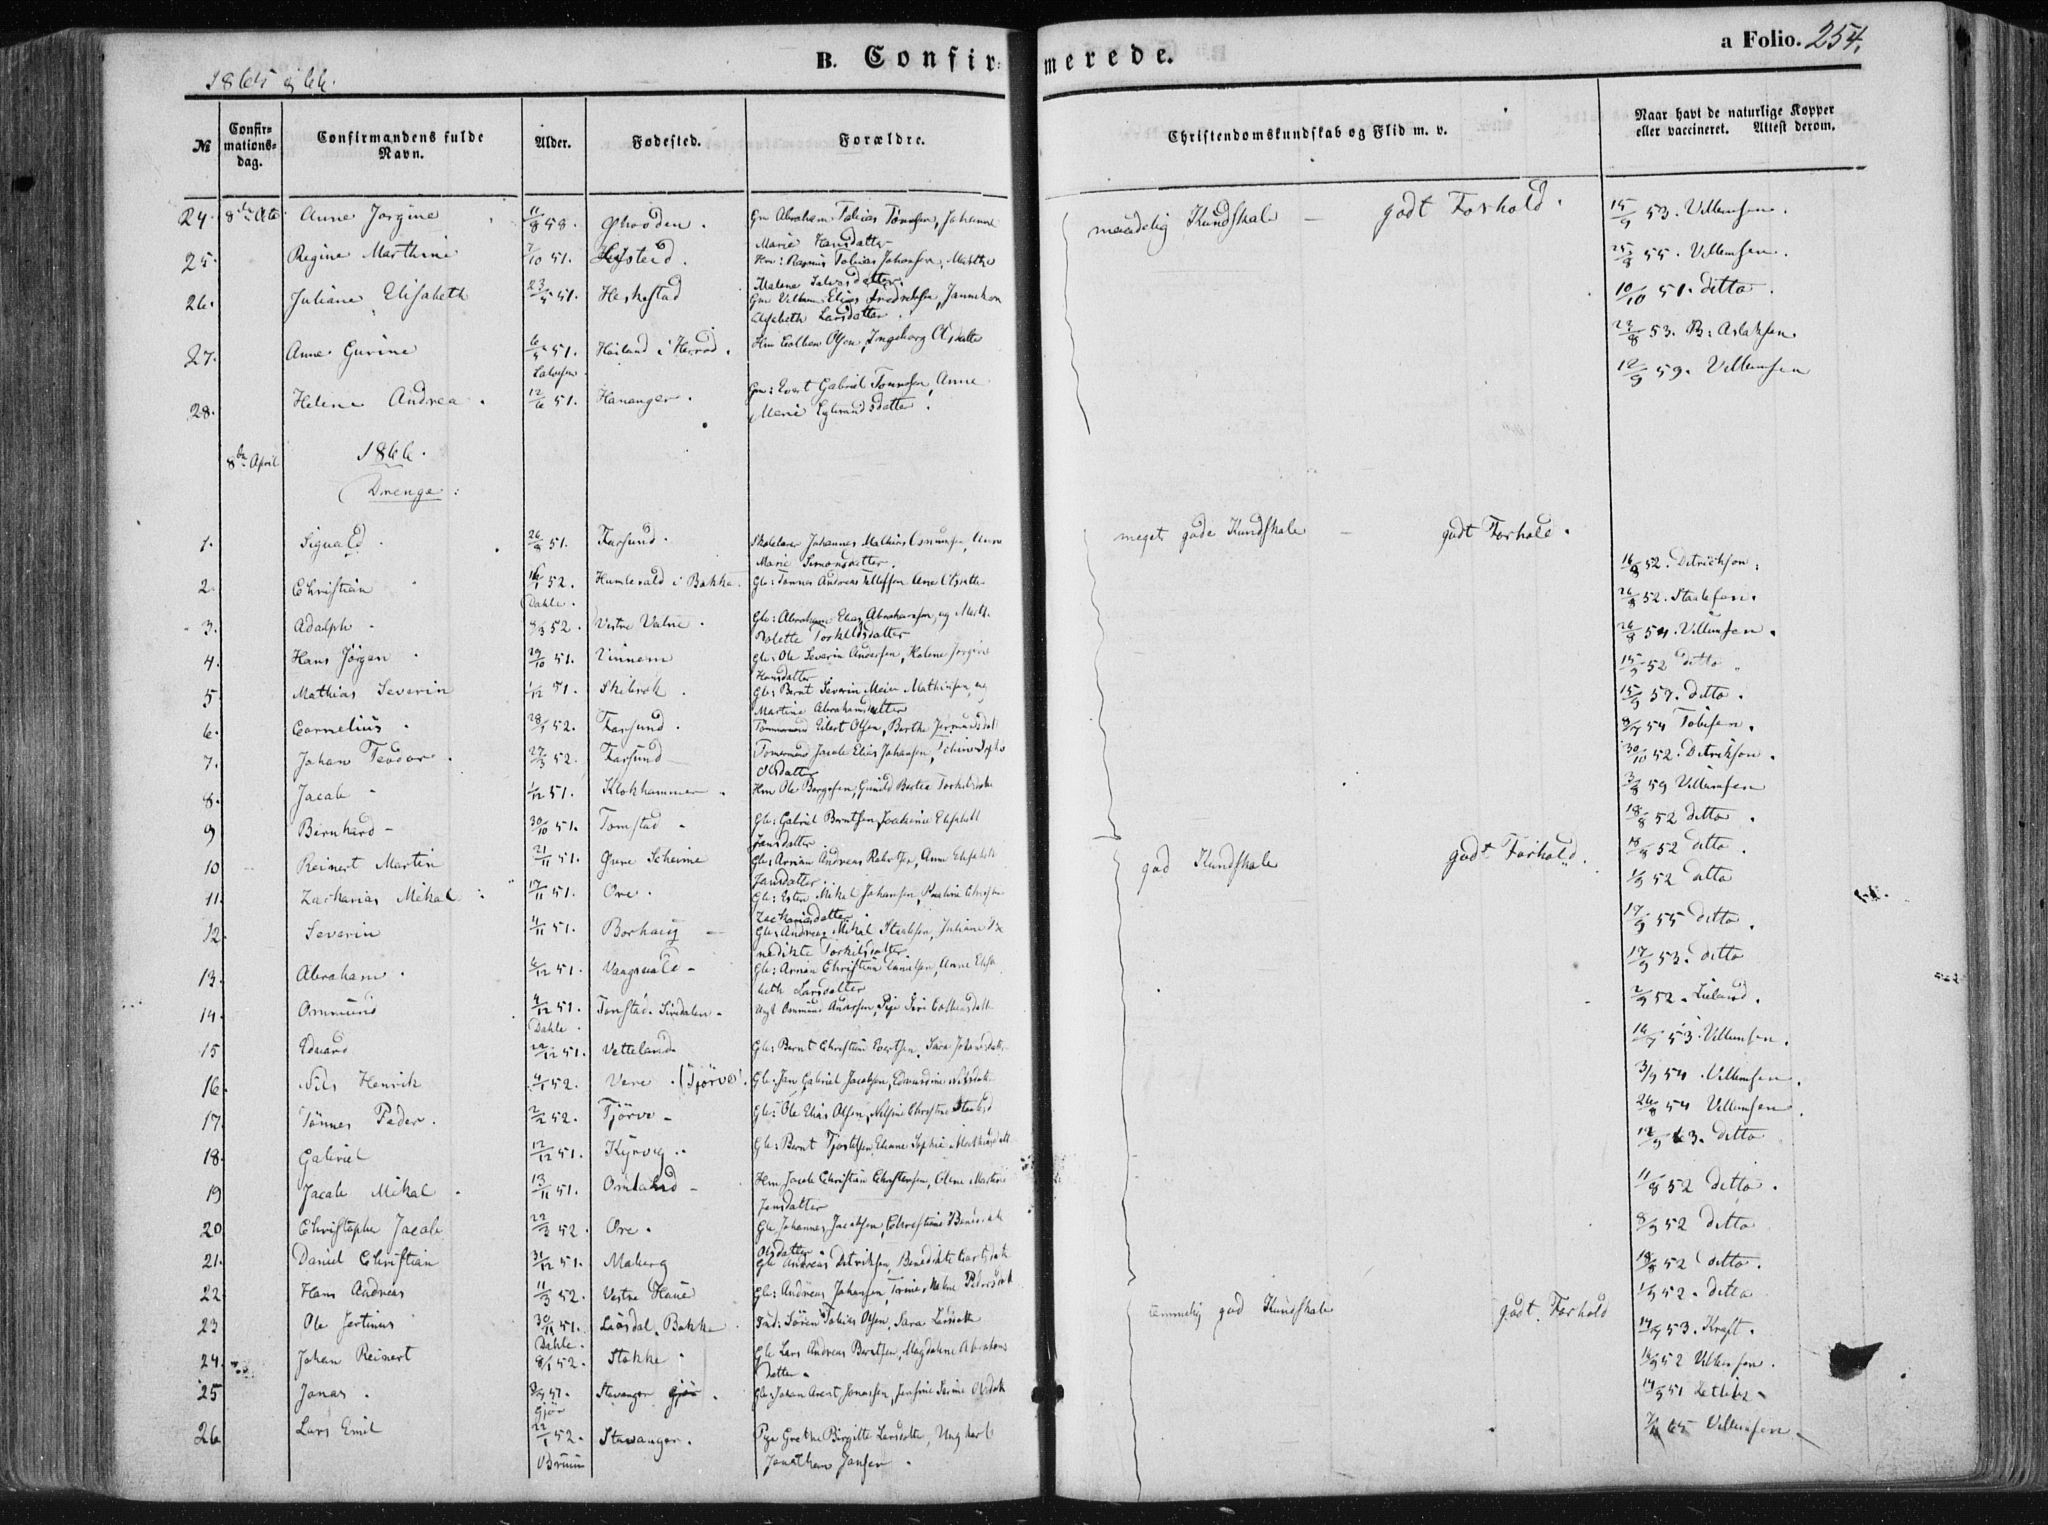 B. Confirmerede.
a Folio. 254.
1865 og 66.
№
Confir-
mations-
dag.
Confirmandens fulde
Navn.
Alder.
Fødested.
Forældre.
Christendomskundskab og Flid m. v.
Naar havt de naturlige Kopper
eller vaccineret. Attest derom.
24. Anne Jorgine 11/8 58. Gm Abraham Tobias Tønnesen, Johanne
Marie Hansdatter
maadelig Kundskab – godt Forhold.
15/9 53. Villumsen.
25. Regine Marthine 7/10 51. Hm: Rasmus Tobias Johansen, Marthe
Malene Salvesdatter
25/8 55. Villumsen.
26. Juliane Elisabeth 23/5 51. Heskestad Gm Villum Elias Fredriksen, Janniken
Elisabeth Larsdatter.
10/10 51. ditto.
27. Anne Gurine 6/5 51. Høiland i Herrød. Hm Colben Olsen, Ingeborg Olsdatter
23/8 53. B: Aslaksen.
28. Helene Andrea. 12/6 51. Hananger. Gm: Evert Gabriel Tønnesen, Anne
Marie Eglersdatter.
12/9 59. Villumsen
8de April 1866.
Drenge:
1. Sigvald. 26/8 51. Farsund. Johannes Mathias Osmundsen, Anne
Marie Simonsdatter.
meget gode Kundskab – godt Forhold.
16/8 52. Ditrichson.
2. Christian 16/1 52. i Bakke. Gle: Tønnes Andreas Tolleffsen
Dahle.
26/8 52. Staalesen.
3. Adolph. 8/3 52. Vestre Vatne. Gle: Abraham Elias Abrahamsen, og
Torkildsdatter
26/8 54. Villumsen.
4. Hans Jörgen 29/10 51. Vinnem Gle: Ole Severin Andersen, Malene Jorgine
Hansdatter
15/9 52 ditto.
5. Mathias Severin 1/12 51. Skibrok. Gle: Bernt Severin Meier Mathiasen, og
Martine Abrahamsdatter
15/9 57. ditto.
6. Cornelius. 28/1 52. Farsund. Tømmermand Eilert Olsen, Berthe
8/7 54 Tobisen.
7. Johan Teodor. 27/3 52. Farsund Tømermand Jacob Elias Johansen,
Olsdatter
30/10 52. Ditrikson.
8. Jacob 1/12 51. Klokhammer Hm Ole Borgesen, Gunild Bertea Torkildsdatter
3/8 59 Villumsen
9 Bernhard 30/10 51. Tomstad Gle: Gabriel Berntsen, Joakime Elisabeth
Jansdatter.
18/8 52 ditto.
10 Reinert Martin 21/11 51. Øvre Skeime Gle: Arnian Andreas, Anne Elisabeth
Jansdatter.
god Kundskab godt Forhold.
18/8 52 ditto.
11. Zacharias Mikal 17/11 51. Ore. Gle: Mikal Johansen,
Zachariasdatter
1/9 52 ditto
12. Severin 4/11 51. Borhaug Gle: Andreas Mikal Staalsen, Juliane Be
nedikte Torkilsdatter.
17/9 55 ditto.
13. Abraham. 6/12 51. Gle: Arnian Christian Danielsen, Anne Elisa
beth Larsdatter
17/9 53. ditto
14. Ommund 4/12 51. Tonstad. Sirdalen. Ungk Ommund Andersen, Pige Siri Colbensdatter
Dahle.
2/9 52. Lieland.
15 Edvard 22/12 51. Vetteland Gle: Bernt Christian Evertsen, Sara Johanesdatter
16/7 53. Villumsen.
16. Nils Henrik 4/1 52. Vere. (Tjörve). Gle: Jan Gabriel Jacobsen, Edvardine Nilsdatter
3/9 54. Villumsen.
17. Tönnes Peder. 2/2 52. Tjörve Gle: Ole Elias Olsen, Nilsine Christine
26/8 54 Villumsen.
18. Gabriel 12/12 51. Kjörvig.. Gle: Bernt Tjostelsen, Eliane Sophie Mathiasdatter
12/9 63. ditto
19 Jacob Mikal. 13/11 51. Omland Hm Jacob Christian Christensen, Olene Martine
Jensdatter
11/8 52 ditto.
20. Christopher Jacob 22/3 52. Ore. Gle Johannes Jacobsen, Christine Benedikte
Olsdatter.
8/9 52 ditto
21. Daniel Christian 31/12 51. Maberg Gle Andreas Ditriksen, Benedikte
18/8 52 ditto.
22. Hans Andreas 11/3 52. Vestre Haue Gle: Andreas Johansen, Malene
temmelig god Kundskab godt Forhold
1/9 52. ditto
23 Ole Jertinus 30/11 51. Liösdal, Bakke Inds: Sören Tobias Olsen, Sara
Dahle.
14/9 53. Kraft.
24. Johan Reinert 8/1 52. Stokke. Gle Lars Andreas Berntsen, Magdalene Abrahams
datter.
18/9 52 Villumsen.
25 Jonas. 8/9 51. Stavanger Gjör. Gle: Johan Arent Jonassen, Josefine Olsdatter
Gjör
14/9 51
26 Lars Emil 22/1 52. Stavanger. Pige Grethe Birgitte Larsdatter, Ungkarl
Bruun Jonathan Jansen.
65 Villumsen